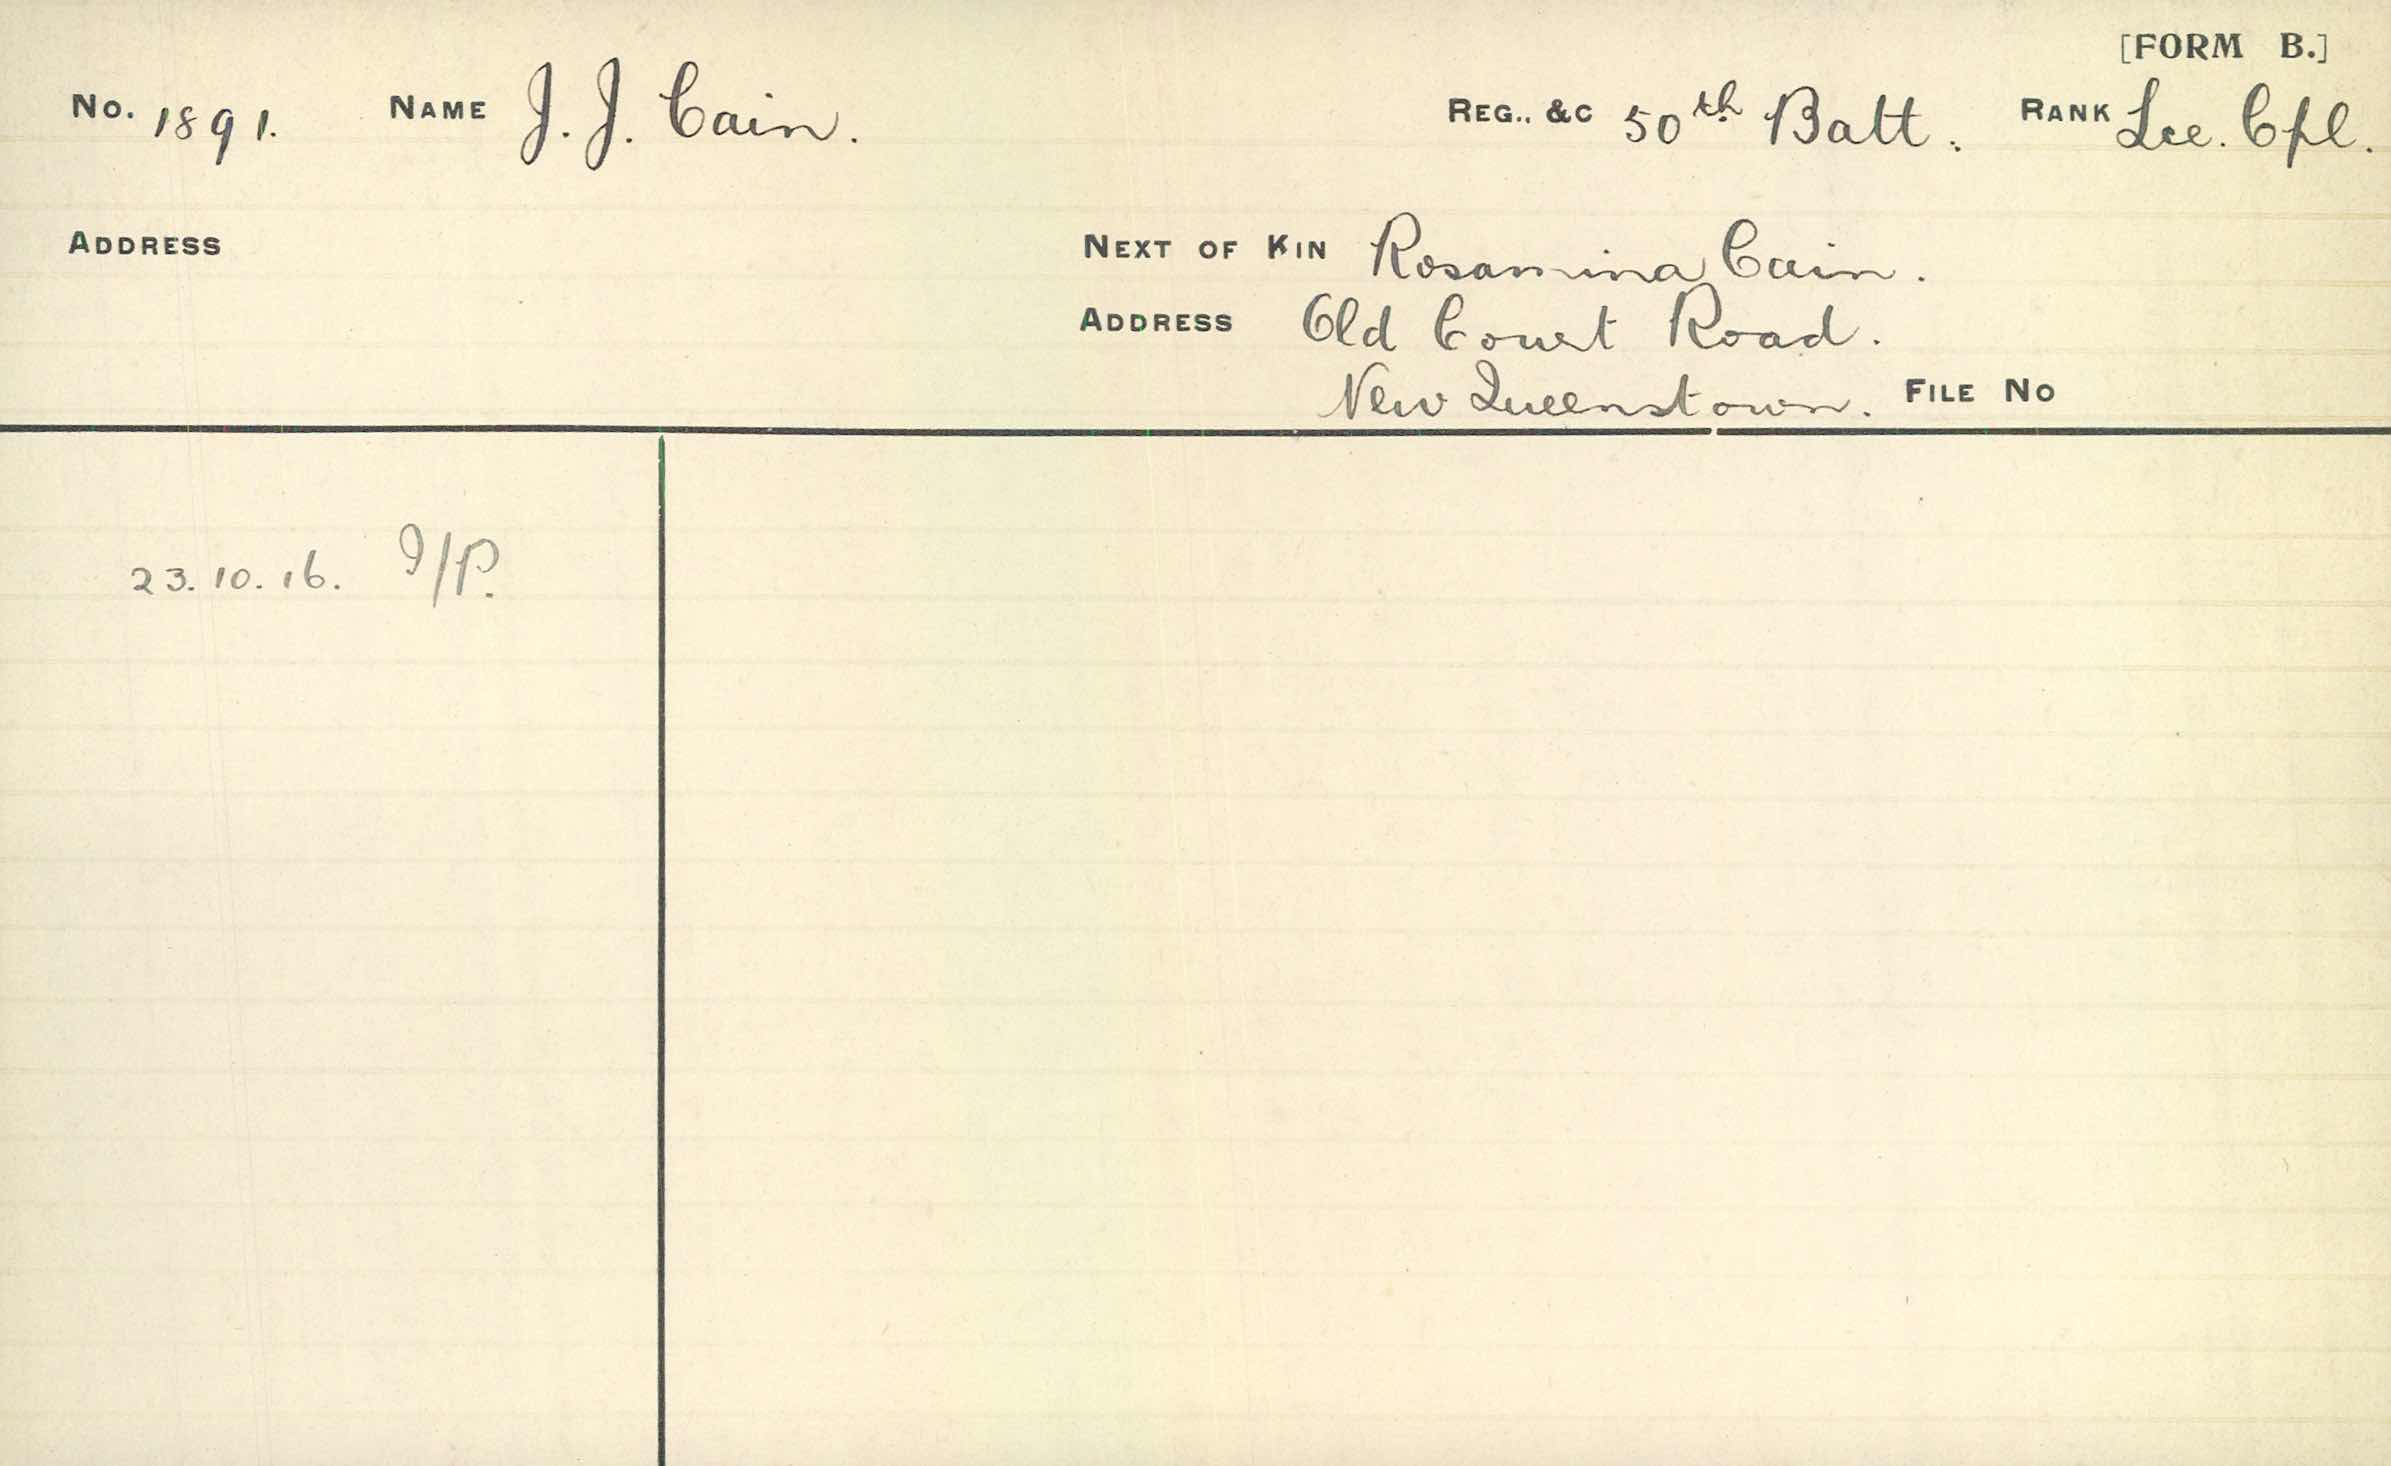 [FORM B.]
No. 1891. NAME J. J. Cain. REG., &C 50th Batt. RANK Lce. Cpl.
ADDRESS NEXT OF KIN Rosamina Cain.
ADDRESS Old Court Road.
New Queenstown. FILE No
23.10.16. I/P.